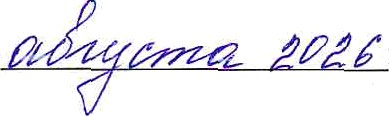 августа 2026